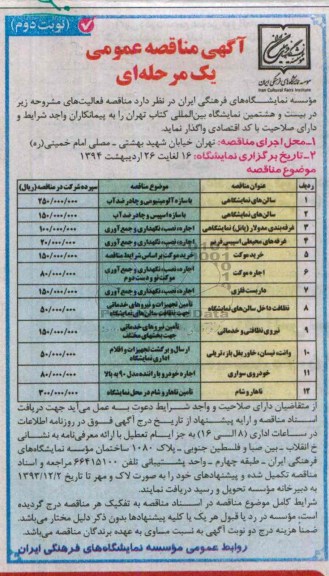 (نوبت دوم)
آگهی مناقصه عمومی
یک مرحله‌ای
موسسه نمایشگاههای فرهنگی ایران
Iran Cultural Fairs Institute
مؤسسه نمایشگاه‌های فرهنگی ایران در نظر دارد مناقصه فعالیت‌های مشروحه زیر
در بیست و هشتمین نمایشگاه بین‌المللی کتاب تهران را به پیمانکاران واجد شرایط و
دارای صلاحیت با کد اقتصادی واگذار نماید.
۱-محل اجرای مناقصه: تهران خیابان شهید بهشتی - مصلی امام خمینی(ره)
۲-تاریخ برگزاری نمایشگاه: ۱۶ لغایت ۲۶ اردیبهشت ۱۳۹۴
موضوع مناقصه
ردیف عنوان مناقصه موضوع مناقصه سپرده شرکت در مناقصه (ریال)
۱ سالن‌های نمایشگاهی با سازه آلومینیومی و چادر ضد آب ۲۵۰/۰۰۰/۰۰۰
۲ سالن‌های نمایشگاهی با سازه اسپیس و چادر ضد آب ۱۵۰/۰۰۰/۰۰۰
۳ غرفه‌بندی مدولار (پانل) نمایشگاهی اجاره، نصب، نگهداری و جمع آوری ۱۰۰/۰۰۰/۰۰۰
۴ غرفه‌های محیطی اسپیس فریم اجاره، نصب، نگهداری و جمع آوری ۲۰/۰۰۰/۰۰۰
۵ خرید موکت خرید موکت بر اساس شرایط مناقصه ۱۵۰/۰۰۰/۰۰۰
۶ اجاره موکت اجاره، نصب، نگهداری و جمع آوری موکت نو و دست دوم ۸۰/۰۰۰/۰۰۰
۷ داربست فلزی اجاره، نصب، نگهداری و جمع آوری ۱۵۰/۰۰۰/۰۰۰
۸ نظافت داخل سالن‌های نمایشگاه تأمین تجهیزات و نیروهای خدماتی جهت نظافت سالن‌های نمایشگاه ۵۰/۰۰۰/۰۰۰
۹ نیروی نظافتی و خدماتی تأمین نیروهای خدماتی جهت بخشهای مختلف ۱۵۰/۰۰۰/۰۰۰
۱۰ وانت، نیسان، خاور بغل باز، تریلی ارسال و برگشت تجهیزات و اقلام اداری نمایشگاه ۵۰/۰۰۰/۰۰۰
۱۱ خودروی سواری اجاره خودرو با راننده مدل ۹۰ به بالا ۸۰/۰۰۰/۰۰۰
۱۲ ناهار و شام تأمین ناهار و شام در محل نمایشگاه ۳۰۰/۰۰۰/۰۰۰
از متقاضیان دارای صلاحیت و واجد شرایط دعوت به عمل می‌آید جهت دریافت
اسناد مناقصه و ارایه پیشنهاد از تاریخ درج آگهی فوق در روزنامه اطلاعات
در ساعات اداری (۸ الی ۱۶) به جز ایام تعطیل با ارائه معرفی‌نامه به نشانی
خ انقلاب - بین صبا و فلسطین جنوبی - پلاک ۱۰۸۰ ساختمان مؤسسه نمایشگاه‌های
فرهنگی ایران - طبقه چهارم - واحد پشتیبانی تلفن ۶۶۴۱۵۱۰۰ مراجعه و اسناد
مناقصه تکمیل شده و پیشنهادهای خود را به صورت لاک و مهر تا تاریخ ۱۳۹۳/۱۲/۲
به دبیرخانه مؤسسه تحویل و رسید دریافت نمایند.
شرایط کامل موضوع مناقصه در اسناد مناقصه به تفکیک هر مناقصه درج گردیده
است. مؤسسه در رد یا قبول هر یک یا کلیه پیشنهادها بدون ذکر دلیل مختار می‌باشد.
ضمناً هزینه درج دو نوبت آگهی به نسبت مساوی به عهده برندگان مناقصه می‌باشد.
روابط عمومی مؤسسه نمایشگاه‌های فرهنگی ایران